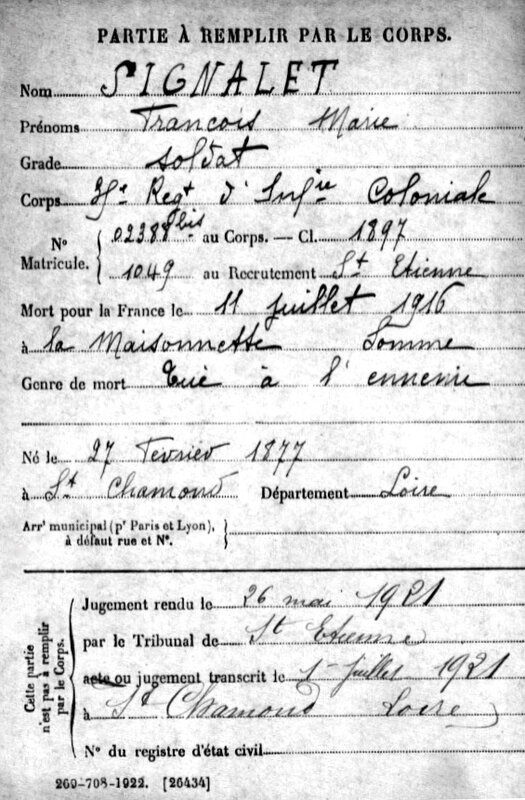 PARTIE À REMPLIR PAR LE CORPS.
Nom SIGNALET
Prénoms Francois Marie
Grade soldat
Corps Regt d'Infie Coloniale
No Matricule. 02388 bis au Corps. — Cl. 1897
1049 au Recrutement St Etienne
Mort pour la France le 11 juillet 1916
à la Maisonnette Somme
Genre de mort tué à l'ennemi
Né le 27 Fevrier 1877
à St Chamond Département Loire
Arrt municipal (pr Paris et Lyon),
à défaut rue et No.
Cette partie n'est pas à remplir par le Corps.
Jugement rendu le 26 mai 1921
par le Tribunal de St Etienne
acte ou jugement transcrit le 1 juillet 1921
à St Chamond Loire
No du registre d'état civil
269-708-1922. [26434]